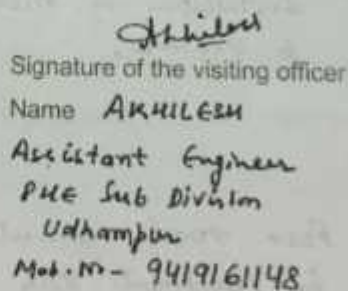 Akhilesh
Signature of the visiting officer
Name AKHILESH
Assistant Engineer
PHE Sub Division
Udhampur
Mob. No - 9419161148